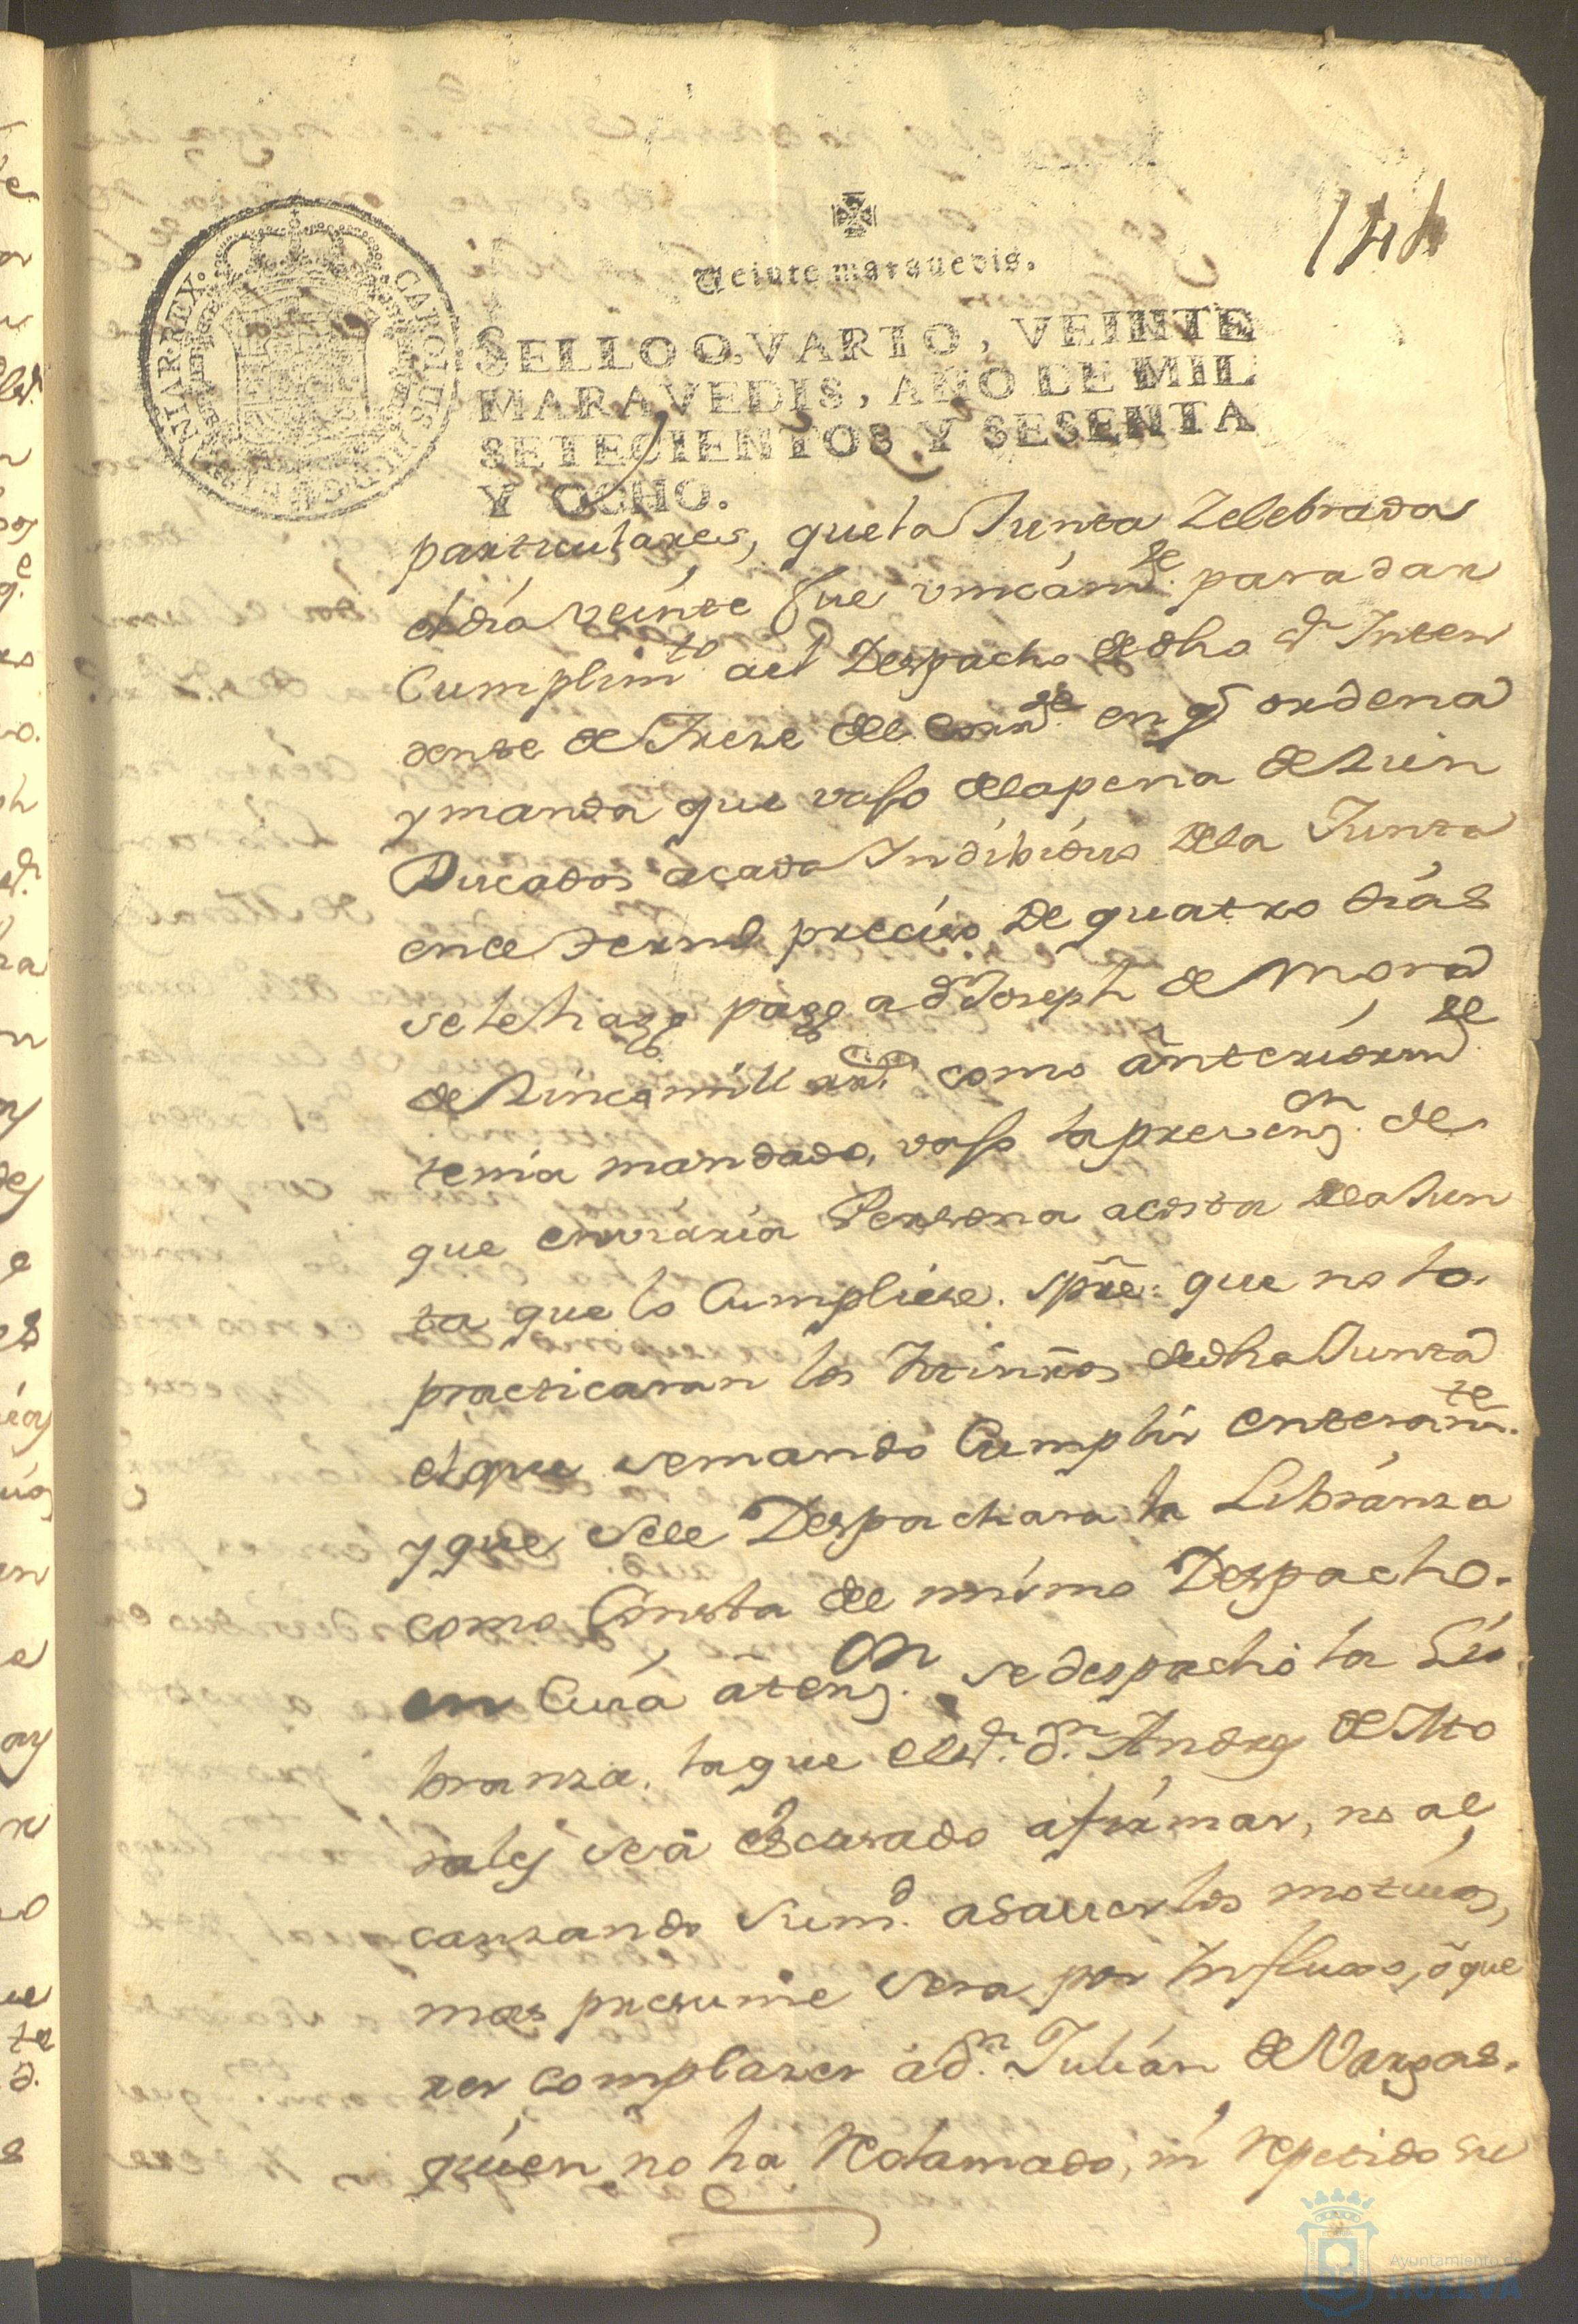 144
Veinte maravedis.
SELLO QVARTO, VEINTE
MARAVEDIS, AÑO DE MIL
SETECIENTOS Y SESENTA
Y OCHO.
CAROLUS III D G HISPANIAR REX.
particulares, que la Junta Zelebrada
el dia veinte fue unicamte. para dar
Cumplimto al Despacho de dho Sr Inten
dente de Trese del corrte en q ordena
y manda que vaso de la pena de Zien
Ducados a cada Indibiduo de la Junta
en el termo preciso de quatro dias
se le haga pago a dn Joseph de Mora
de Zinco mill rrs. como anteriormte
tenia mandado, vaso la prevenzon. de
que enviaria Persona a costa de la Jun
ta que lo Cumpliese. spre. que no lo
practicaran los de dha Junta
el que se mandó Cumplir enteramte.
y que se le Despachara la Libransa
como Consta del mismo Despacho.
en Cuia atenzon. se despachó la Li
bransa. la que el Sr. dn. Andres de Mo
rales se a escusado a firmar, no al
cansando su md. a saver los motivos,
mas presume sera por Influxo, ó que
rer complaser á dn. Julián de Vargas.
quien no ha Reclamado, ni repetido su
Ayuntamiento de
HUELVA